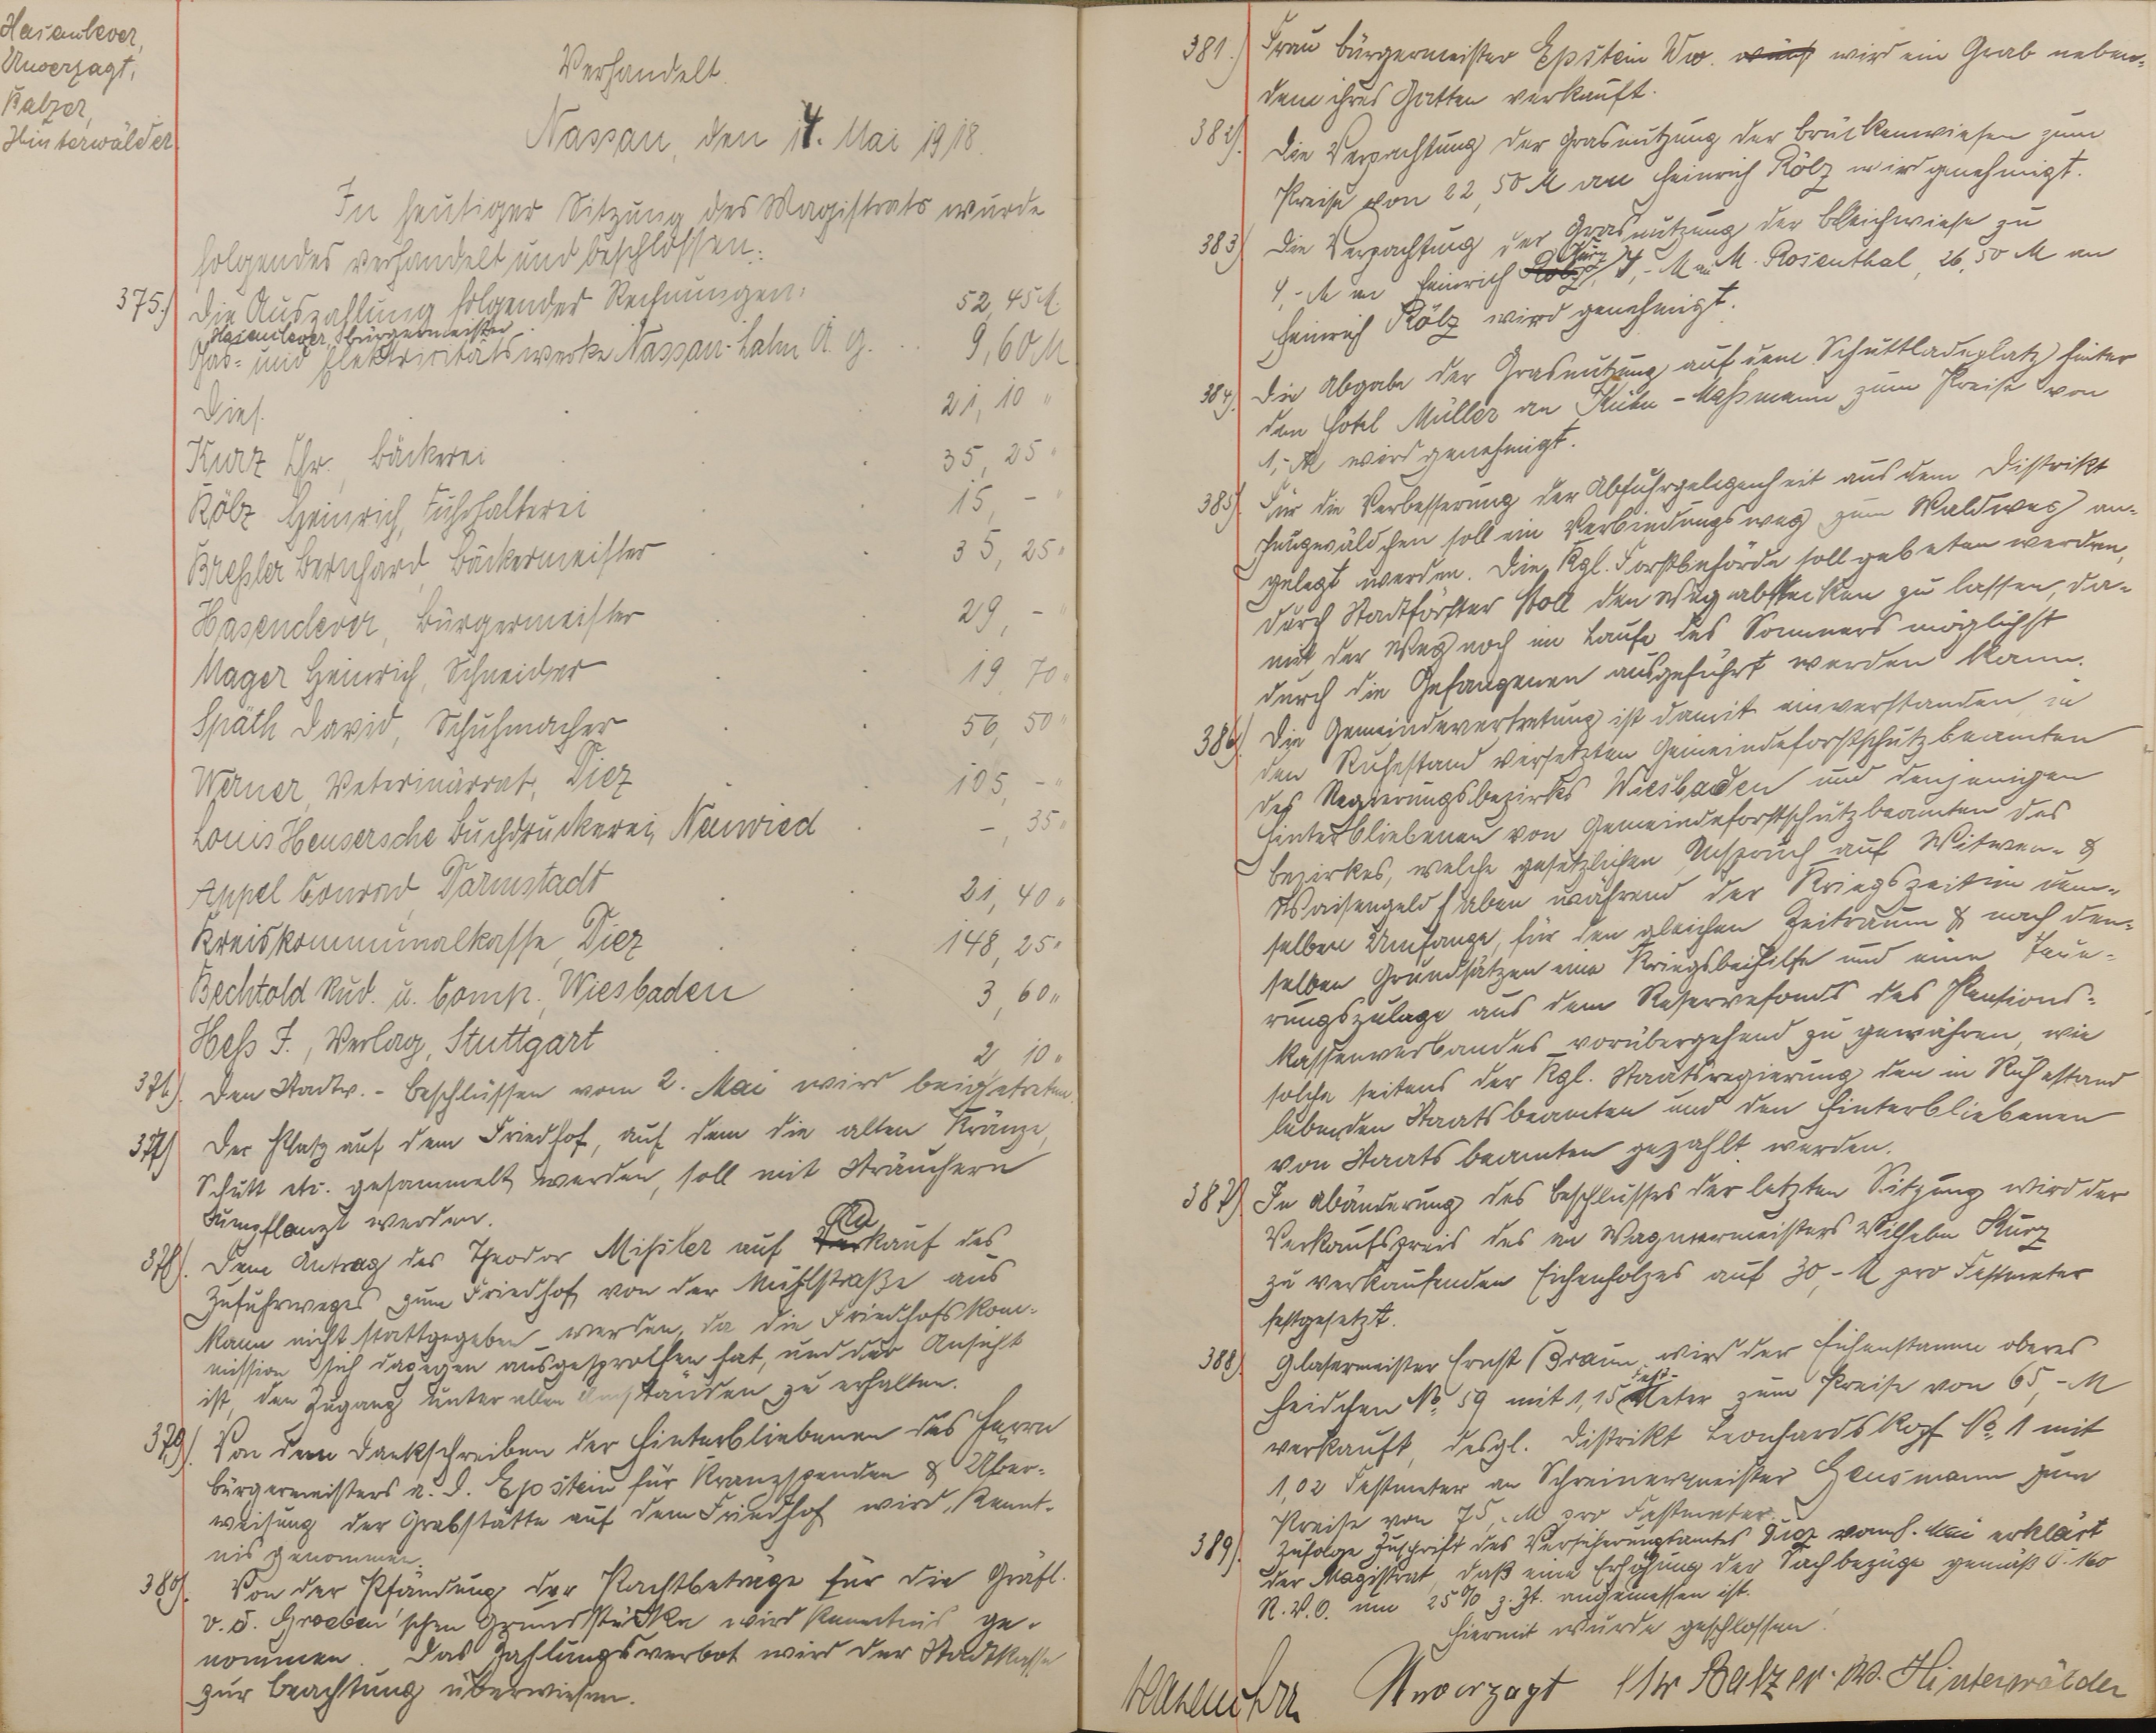 Hasenclever,
Unverzagt,
Balzer,
Hinterwälder
Verhandelt
Nassau, den 14. Mai 1918.
In heutiger Sitzung des Magistrats wurde
folgendes verhandelt und beschlossen:
375.) Die Auszahlung folgender Rechnungen:
Hasenclever, Bürgermeister 52,45 M.
Gas- und Elektricitätswerke Nassau-Lahn A. G. 9,60 M
Dies. 21,10 "
Kurz Chr., Bäckerei 35,25 "
Kölz Heinrich, Fuhrhalterei 15,- "
Breßler Bernhard, Bäckermeister 35,25 "
Hasenclever, Bürgermeister 29,- "
Mager Heinrich, Schneider 19,70 "
Späth David, Schuhmacher 56,50 "
Werner, Veterinärrat, Diez 105,- "
Louis Heusersche Buchdruckerei, Neuwied -,35 "
Appel Conrad, Darmstadt 21,40 "
Kreiskommunalkasse, Diez 148,25 "
Bechtold Rud. u. Comp., Wiesbaden 3,60 "
Heß J., Verlag, Stuttgart 2,10 "
376.) Den Stadtv.-Beschlüssen vom 2. Mai wird beigetreten.
377) Der Platz auf dem Friedhof, auf dem die alten Kränze,
Schutt etc. gesammelt werden, soll mit Sträuchern
umpflanzt werden.
378). Dem Antrag des Theodor Mißler auf Ankauf des
Zufuhrweges zum Friedhof von der Mühlstraße aus
kann nicht stattgegeben werden, da die Friedhofskom-
mission sich dagegen ausgesprochen hat, und der Ansicht
ist, den Zugang unter allen Umständen zu erhalten.
379). Von dem Dankschreiben der Hinterbliebenen des Herrn
Bürgermeisters a. D. Epstein für Kranzspenden & Über-
weisung der Grabstätte auf dem Friedhof wird Kennt-
nis genommen.
380). Von der Pfändung der Pachtbeträge für die Gräfl.
v. d. Groeben'schen Grundstücke wird Kenntnis ge-
nommen. Das Zahlungsverbot wird der Stadtkasse
zur Beachtung überwiesen.
381.) Frau Bürgermeister Epstein Ww. wird ein Grab neben
dem ihres Gatten verkauft.
382). Die Verpachtung der Grasnutzung der Brückenwiesen zum
Preise von 22,50 M an Heinrich Kölz wird genehmigt.
383) Die Verpachtung der Grasnutzung der Bleichwiese zu
4,- M an Heinrich Kurz, 4,- M an M. Rosenthal, 26,50 M an
Heinrich Kölz wird genehmigt.
384). Die Abgabe der Grasnutzung auf dem Schuttladeplatz hinter
dem Hotel Müller an Kuhn-Maßmann zum Preise von
1,- M wird genehmigt.
385) Für die Verbesserung der Abfuhrgelegenheit aus dem Distrikt
soll ein Verbindungsweg zum Waldweg an-
gelegt werden. Die Kgl. Forstbehörde soll gebeten werden,
durch Stadtförster Stoll den Weg abstecken zu lassen, da-
mit der Weg noch im Laufe des Sommers möglichst
durch die Gefangenen ausgeführt werden kann.
386) Die Gemeindevertretung ist damit einverstanden, in
den Ruhestand versetzten Gemeindeforstschutzbeamten
des Regierungsbezirks Wiesbaden und denjenigen
Hinterbliebenen von Gemeindeforstschutzbeamten des
Bezirkes, welche gesetzlichen Anspruch auf Witwen- &
Waisengeld haben während der Kriegszeit im dem-
selben Umfange, für den gleichen Zeitraum & nach den-
selben Grundsätzen eine Kriegsbeihilfe und eine Teue-
rungszulage aus dem Reservefonds des Pensions-
kassenverbandes vorübergehend zu gewähren, wie
solche seitens der Kgl. Staatsregierung den in Ruhestand
lebenden Staatsbeamten und den Hinterbliebenen
von Staatsbeamten gezahlt werden.
387) In Abänderung des Beschlusses der letzten Sitzung wird der
Verkaufspreis des an Wagnermeisters Wilhelm Kurz
zu verkaufenden Eichenholzes auf 30,- M pro Festmeter
festgesetzt.
388). Glasermeister Ernst Braun wird der Eichenstamm oberes
Heidchen No. 59 mit 1,15 Festmeter zum Preise von 65,- M
verkauft, desgl. Distrikt Leonhardskopf No. 1 mit
1,02 Festmeter an Schreinermeister Hausmann zum
Preise von 75,- M pro Festmeter.
389). Zufolge Zuschrift des Versicherungsamtes Diez vom Mai erklärt
der Magistrat, daß eine Erhöhung der Sachbezüge gemäß §. 160
R. V. O. um 25% z. Zt. angemessen ist.
Hiermit wurde geschlossen!
Hasenclever Unverzagt Balzer. W. Hinterwälder